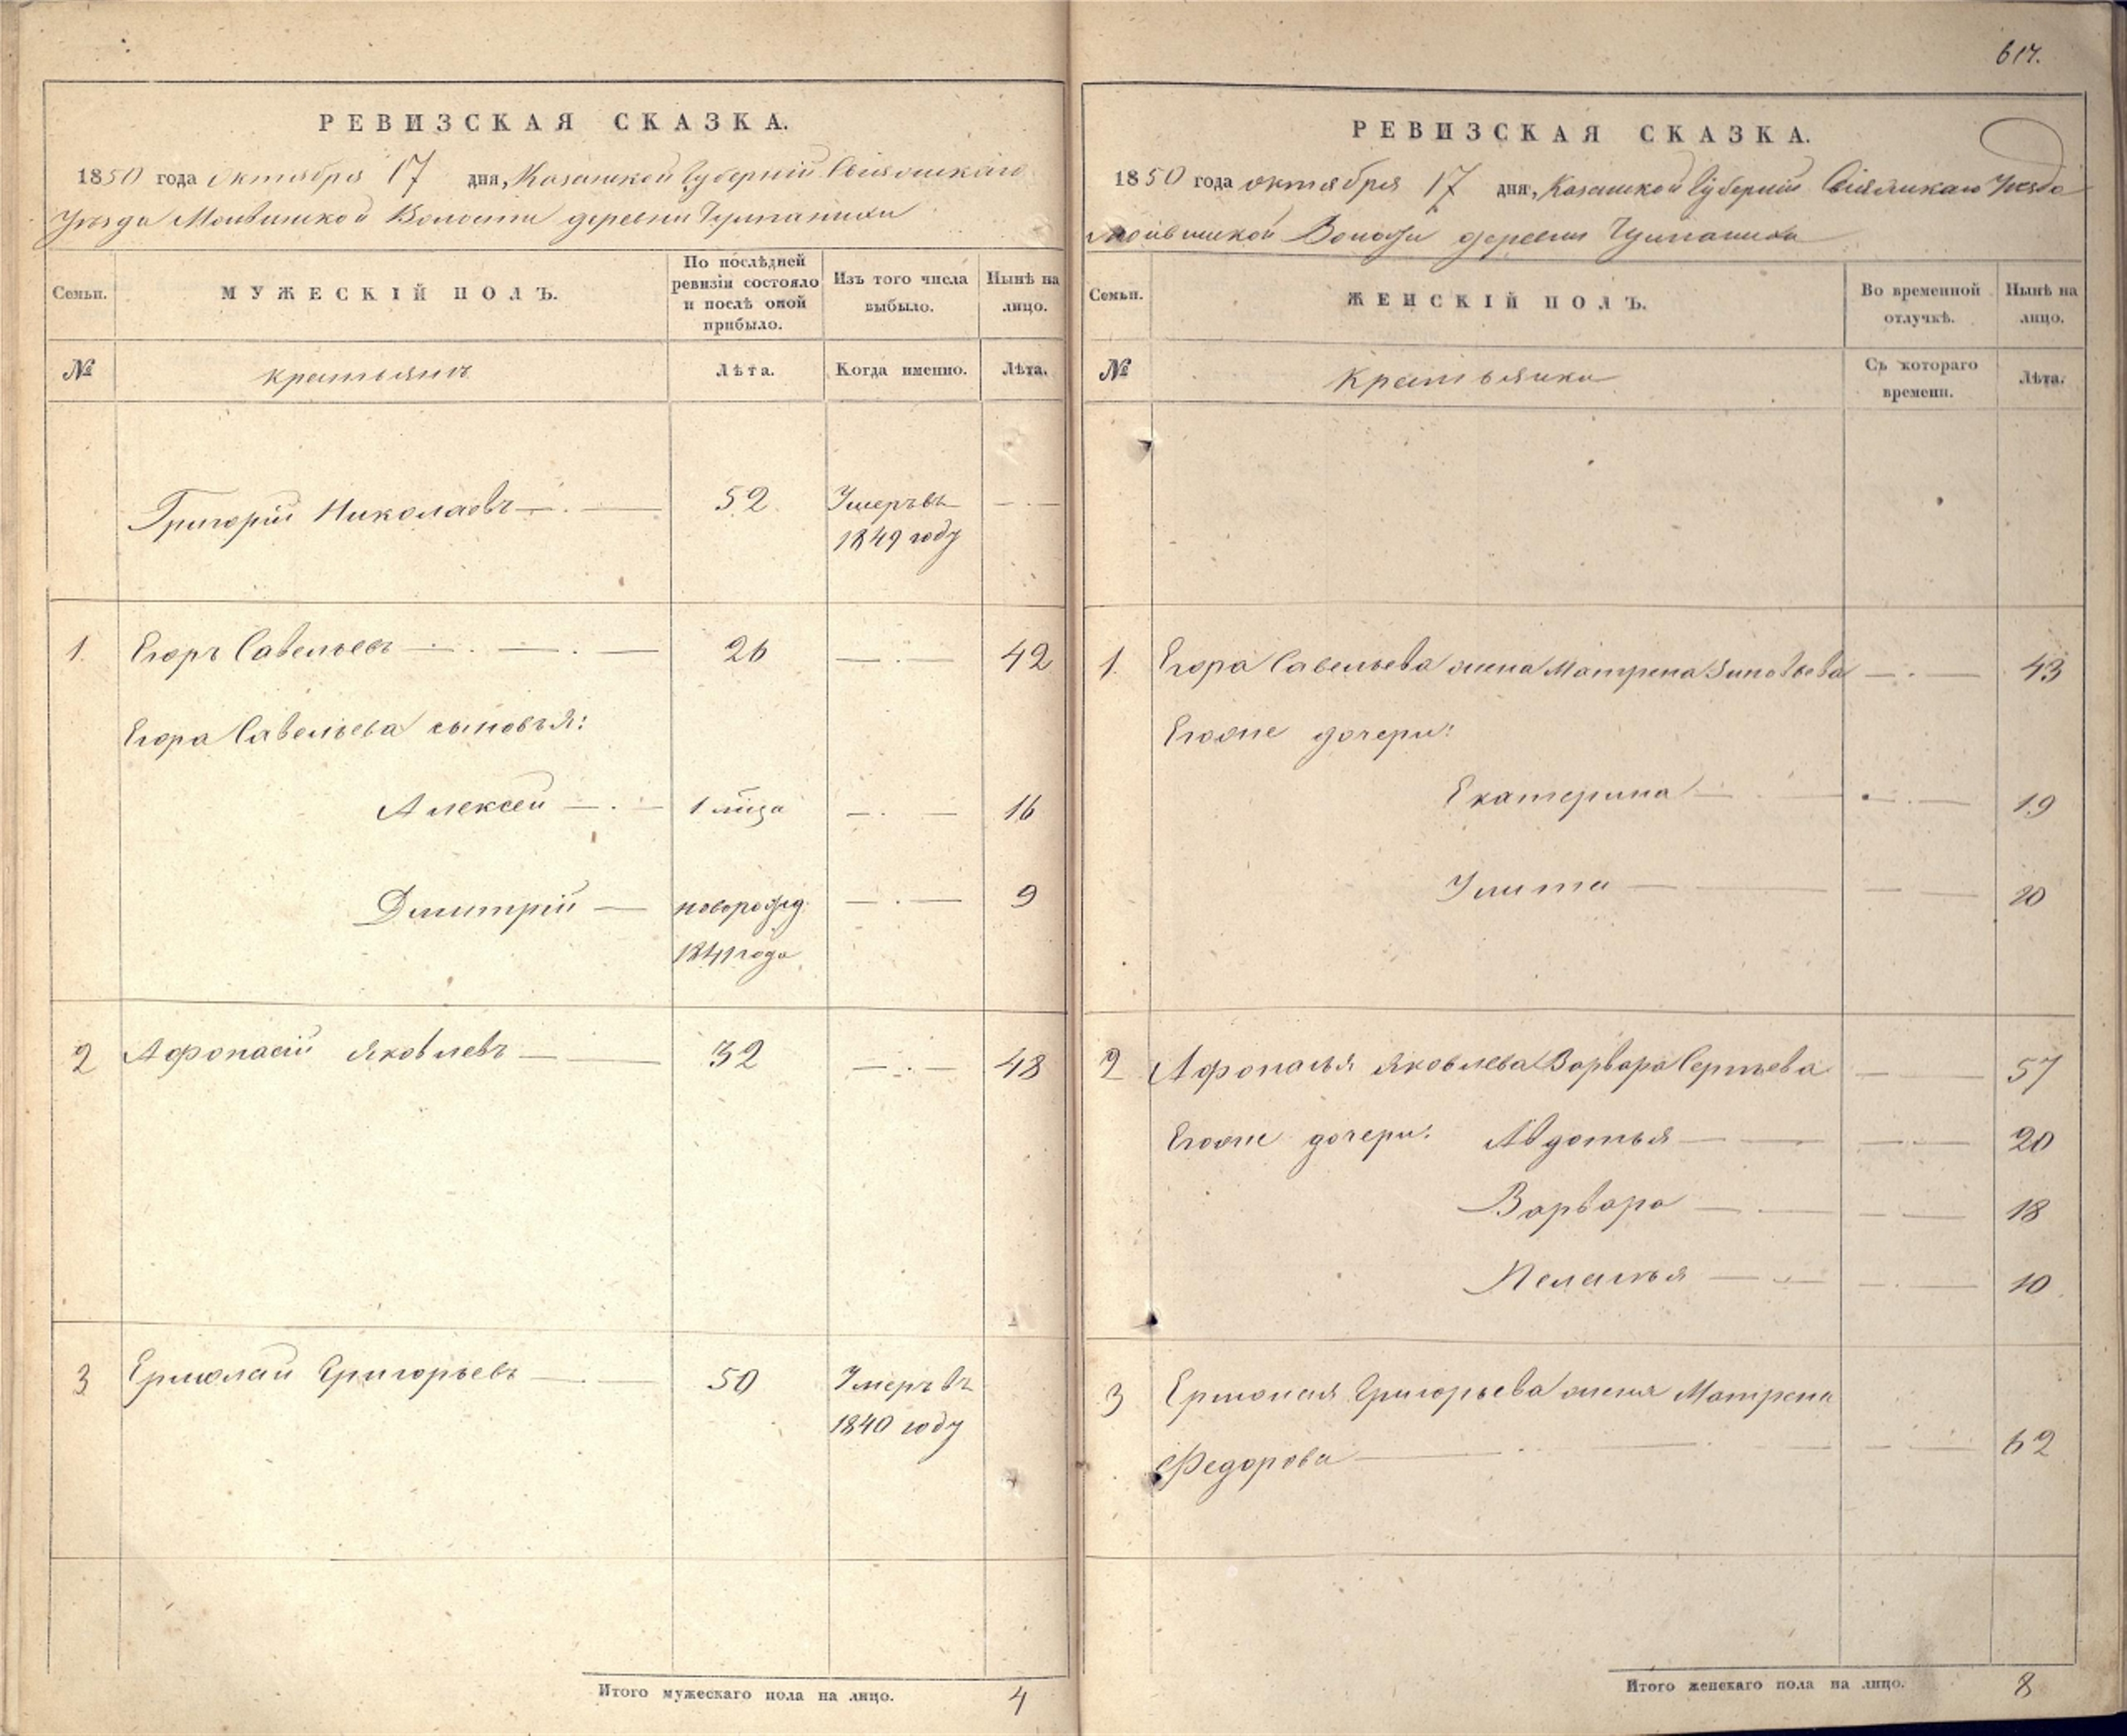 617.
РЕВИЗСКАЯ СКАЗКА.
1850 года октября 17 дня, Казанской Губерніи Свіяжскаго
Уѣзда Моквинской Волости деревни
МУЖЕСКІЙ ПОЛЪ.
Семьи.
По послѣдней ревизіи состояло и послѣ оной прибыло.
Изъ того числа выбыло.
Нынѣ на лицо.
№ крестьянъ Лѣта. Когда именно. Лѣта.
Григорій Николаевъ 52 Умеръ въ
1849 году
1. Егоръ Савельевъ 26 42
Егора Савельева сыновья:
Алексей 1 16
Дмитрій новорожд. 9
1841 года
2 Афонасій Яковлевъ 32 48
3 Ермолай Григорьевъ 50 Умеръ въ
1840 году
Итого мужескаго пола на лицо. 4
РЕВИЗСКАЯ СКАЗКА.
1850 года октября 17 дня, Казанской Губерніи Свіяжскаго Уѣзда
Волости деревни
Семьи.
ЖЕНСКІЙ ПОЛЪ.
Во временной отлучкѣ.
Нынѣ на лицо.
№ Крестьянки Съ котораго времени. Лѣта.
1. Егора Савельева жена Матрена Зиновьева 43
Егоже дочери:
Екатерина 19
Улита 10
2 Афонасья Яковлева Варвара Сергѣева 57
Егоже дочери: Авдотья 20
Варвара 18
Пелагѣя 10
3 Ермолая Григорьева жена Матрена
Федорова 62
Итого женскаго пола на лицо. 8